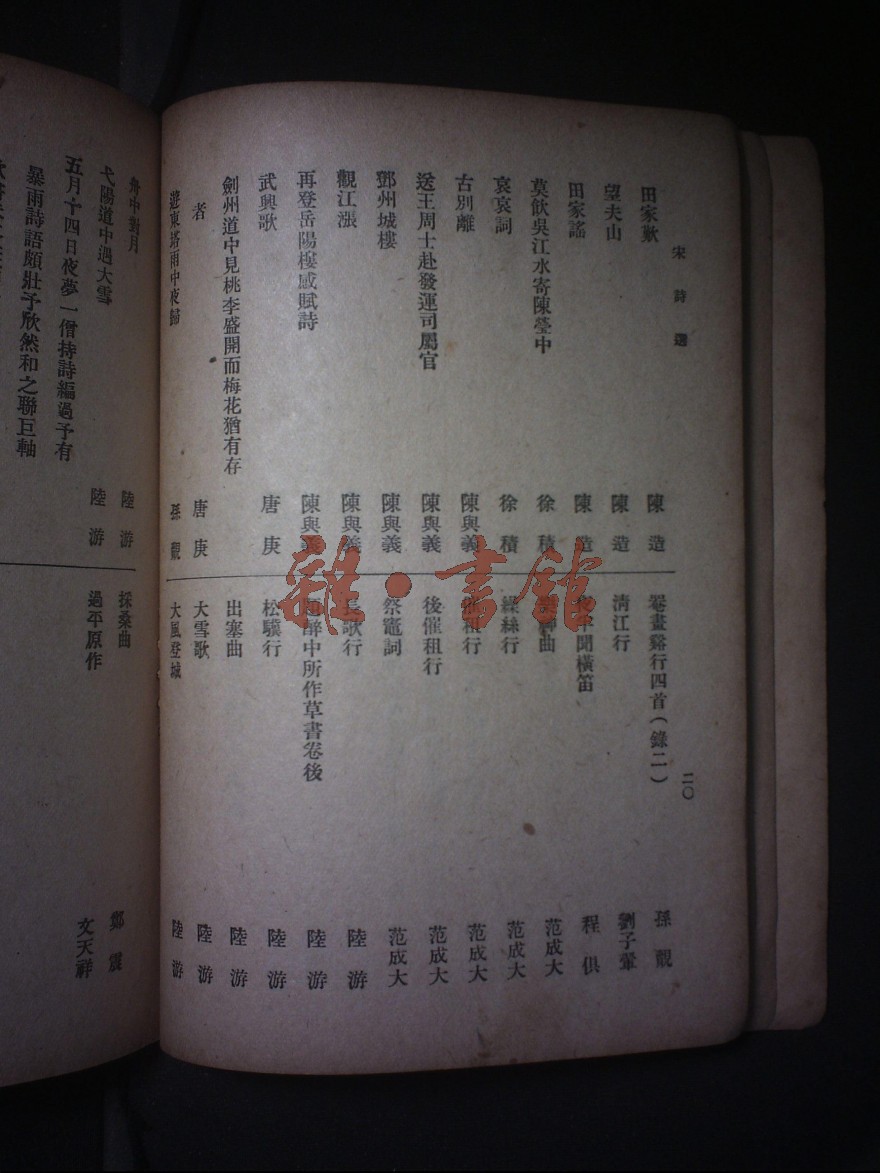 宋詩選
田家歎 陳造
望夫山 陳造
田家謠 陳造
莫飲吳江水寄陳瑩中 徐積
哀哀詞 徐積
古別離 陳與義
送王周士赴發運司屬官 陳與義
鄧州城樓 陳與義
觀江漲 陳與義
再登岳陽樓感賦詩 陳與義
武興歌 唐庚
劍州道中見桃李盛開而梅花猶有存
者 唐庚
遊東塔雨中夜歸 孫覿
二〇
罨畫谿行四首(錄二) 孫覿
清江行 劉子翬
聞橫笛 程俱
曲 范成大
繅絲行 范成大
租行 范成大
後催租行 范成大
祭竈詞 范成大
長歌行 陸游
題醉中所作草書卷後 陸游
松驥行 陸游
出塞曲 陸游
大雪歌 陸游
大風登城 陸游
舟中對月 陸游
弋陽道中遇大雪 陸游
五月十四日夜夢一僧持詩編過予有
暴雨詩語頗壯予欣然和之聯巨軸
採桑曲 鄭震
過平原作 文天祥
雜·書館